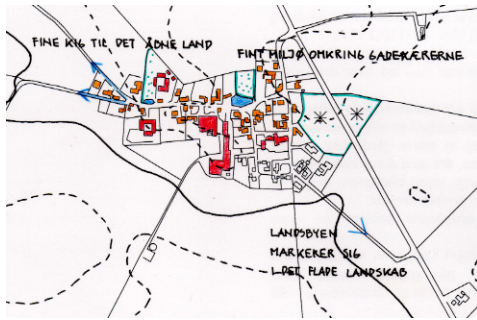 FINE KIG TIL DET ÅBNE LAND
FINT MILJØ OMKRING GADEKÆRERNE
LANDSBYEN
MARKERER SIG
I DET FLADE LANDSKAB